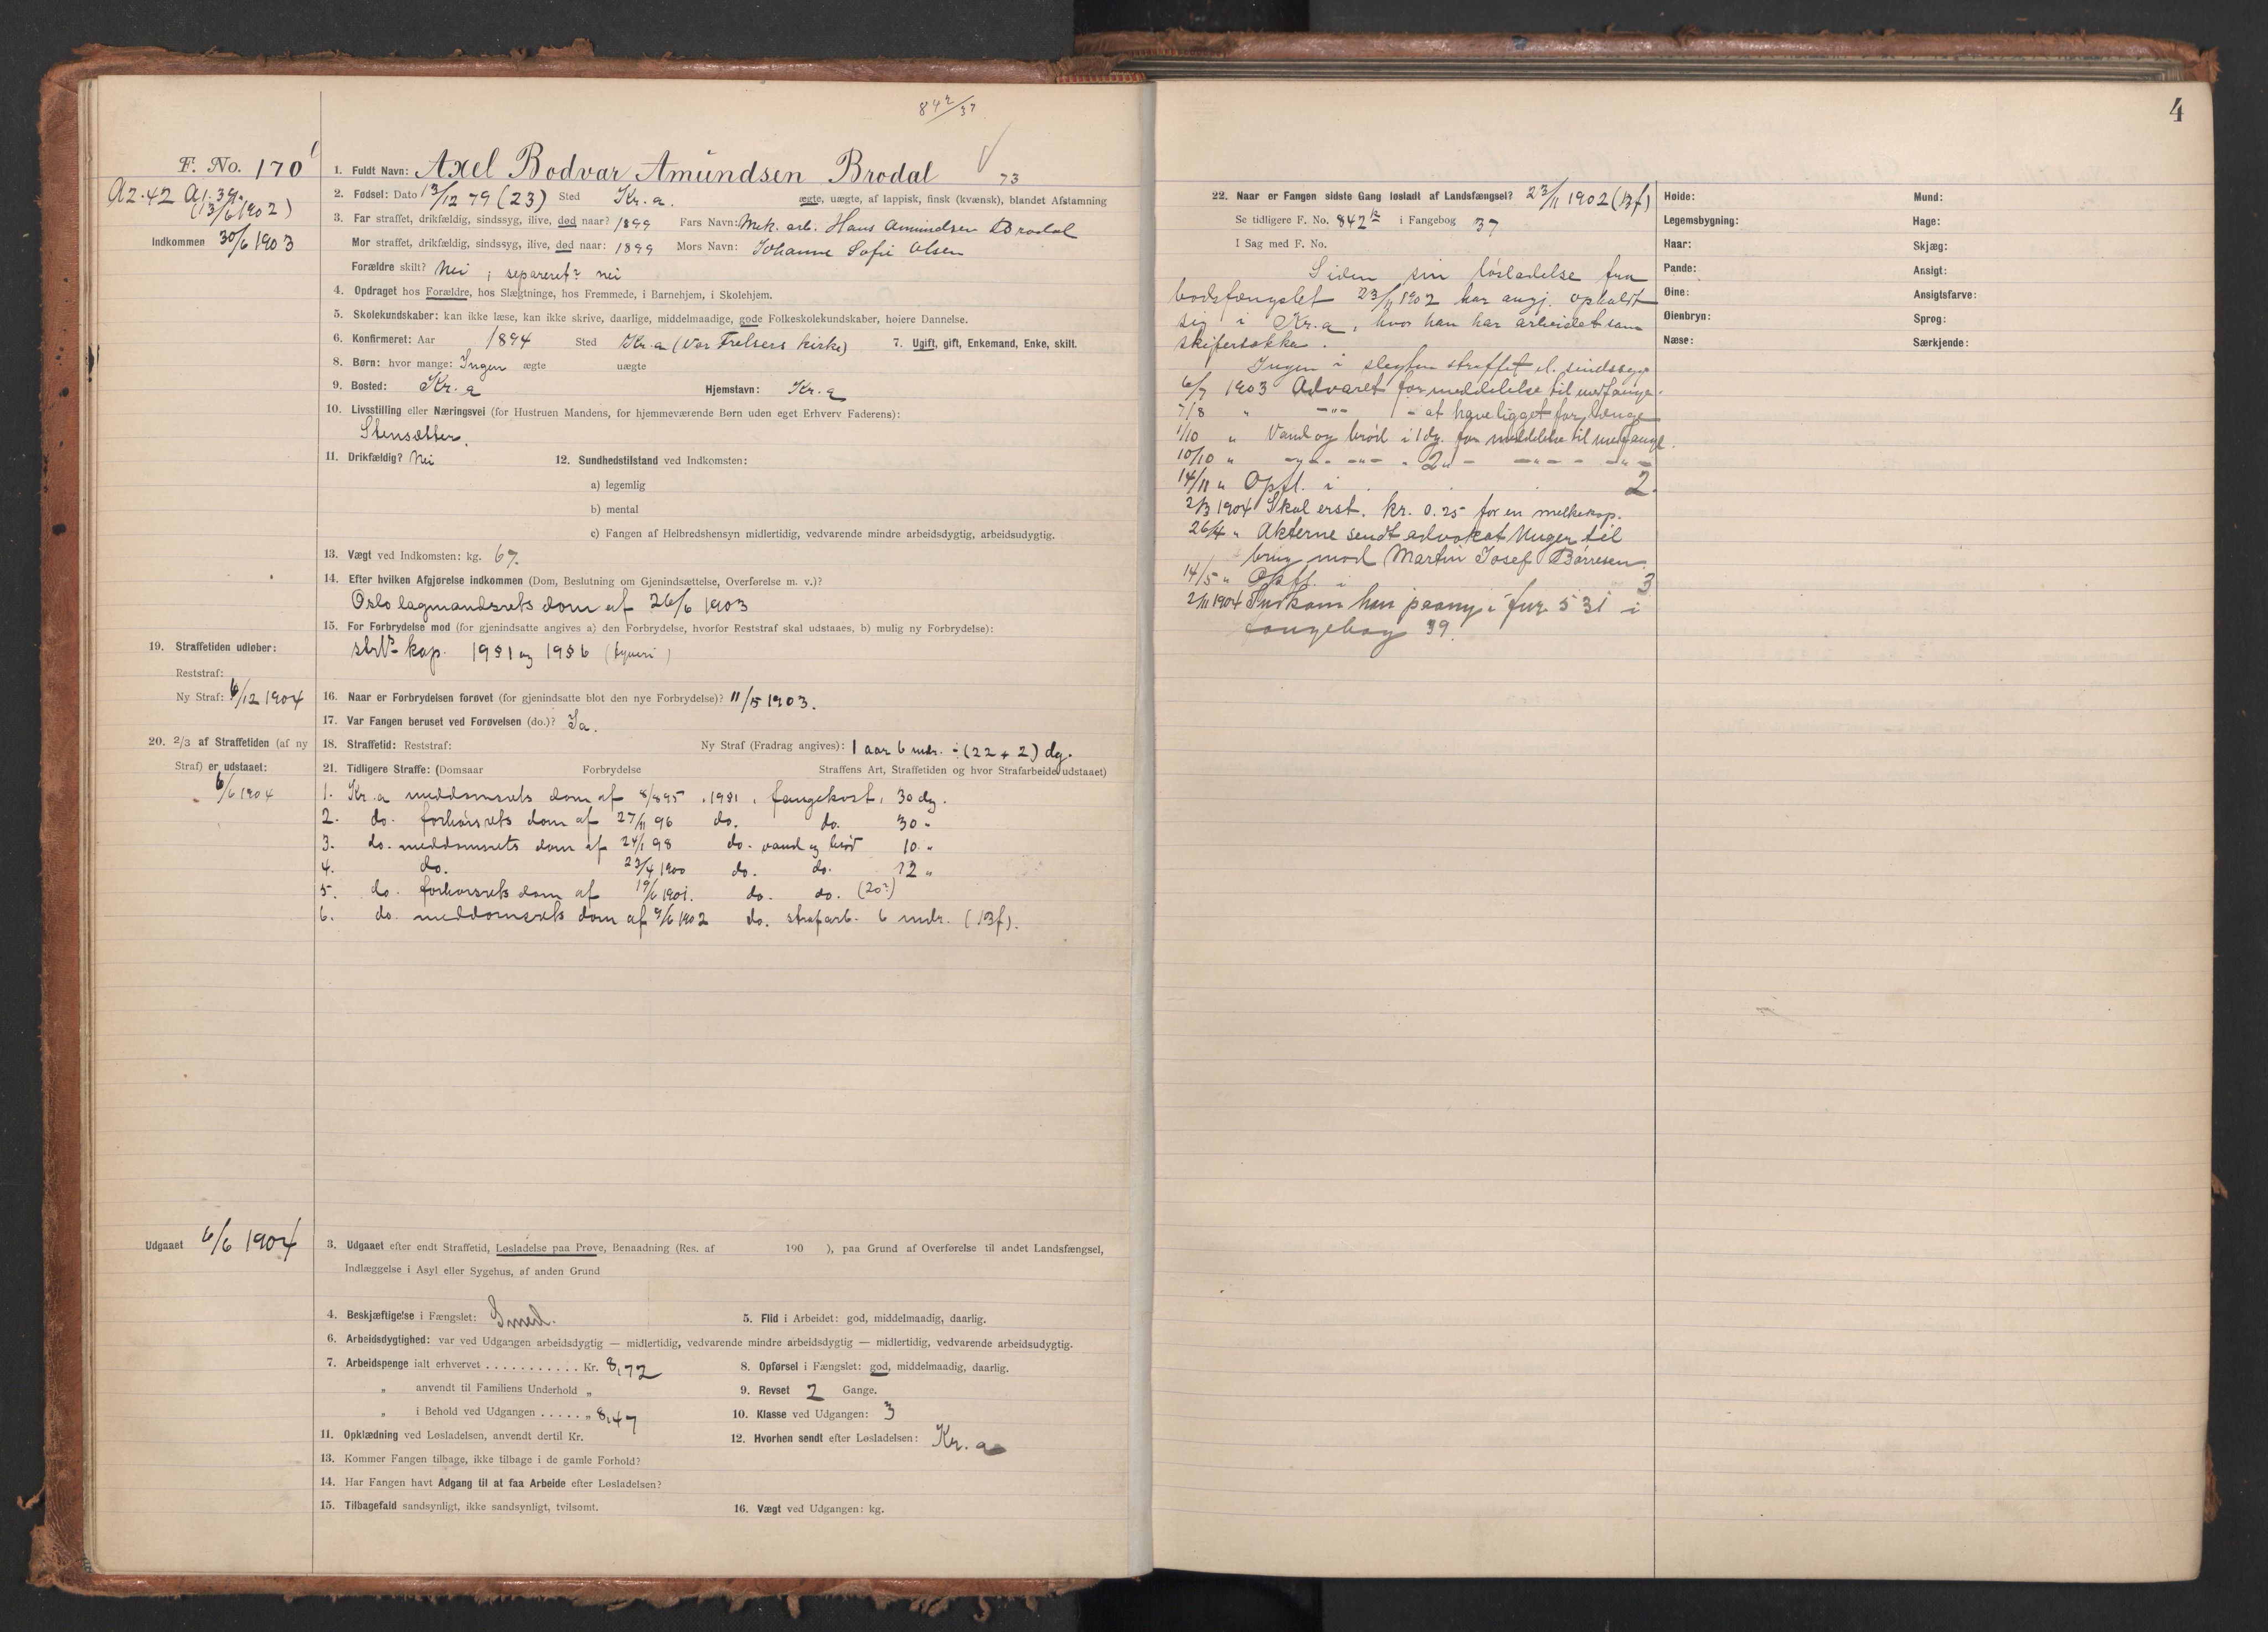 842/37
F. No. 170
1. Fuldt Navn: Axel Bodvar Amundsen Brodal
73
A2.42 A1.39.
(13/6 1902)
Indkommen 30/6 1903
2. Fødsel: Dato 13/12 79 (23) Sted Kr.a. ægte, uægte, af lappisk, finsk (kvænsk), blandet Afstamning
3. Far straffet, drikfældig, sindssyg, ilive, død naar? 1899 Fars Navn: Mek. arb. Hans Amundsen Brodal
Mor straffet, drikfældig, sindssyg, ilive, død naar: 1899 Mors Navn: Johanne Sofie Olsen
Forældre skilt? Nei, separeret? nei
4. Opdraget hos Forældre, hos Slægtninge, hos Fremmede, i Barnehjem, i Skolehjem.
5. Skolekundskaber: kan ikke læse, kan ikke skrive, daarlige, middelmaadige, gode Folkeskolekundskaber, høiere Dannelse.
6. Konfirmeret: Aar 1894 Sted Kr.a (Vor Frelsers kirke) 7. Ugift, gift, Enkemand, Enke, skilt.
8. Børn: hvor mange: Ingen ægte uægte
9. Bosted: Kr.a Hjemstavn: Kr.a
10. Livsstilling eller Næringsvei (for Hustruen Mandens, for hjemmeværende Børn uden eget Erhverv Faderens):
Stensætter.
11. Drikfældig? Nei 12. Sundhedstilstand ved Indkomsten:
a) legemlig
b) mental
c) Fangen af Helbredshensyn midlertidig, vedvarende mindre arbeidsdygtig, arbeidsudygtig.
13. Vægt ved Indkomsten: kg. 67.
14. Efter hvilken Afgjørelse indkommen (Dom, Beslutning om Gjenindsættelse, Overførelse m. v.)?
Oslo lagmandsrets dom af 26/6 1903
15. For Forbrydelse mod (for gjenindsatte angives a) den Forbrydelse, hvorfor Reststraf skal udstaaes, b) mulig ny Forbrydelse):
kap. 1931 og 1936 (tyveri)
19. Straffetiden udløber:
Reststraf:
Ny Straf: 6/12 1904
16. Naar er Forbrydelsen forøvet (for gjenindsatte blot den nye Forbrydelse)? 11/5 1903.
17. Var Fangen beruset ved Forøvelsen (do.)? Ja.
20. 2/3 af Straffetiden (af ny
Straf) er udstaaet:
6/6 1904
18. Straffetid: Reststraf: Ny Straf (Fradrag angives): 1 aar 6 mdr. ÷ (22 + 2) dg.
21. Tidligere Straffe: (Domsaar Forbrydelse Straffens Art, Straffetiden og hvor Strafarbeide udstaaet)
1. Kr.a meddomsrets dom af 8/8 95, 1931, fangekost, 30 dg.
2. do. forhørsrets dom af 27/11 96 do. do. 30 "
3. do. meddomsrets dom af 24/1 98 do. vand og brød 10 "
4. do. 23/4 1900 do. do. 12 "
5. do. forhørsrets dom af 19/6 1901. do. do. (20?)
6. do. meddomsrets dom af 9/6 1902 do. strafarb. 6 mdr. (Bf).
Udgaaet 6/6 1904
3. Udgaaet efter endt Straffetid, Løsladelse paa Prøve, Benaadning (Res. af 190 ), paa Grund af Overførelse til andet Landsfængsel,
Indlæggelse i Asyl eller Sygehus, af anden Grund
4. Beskjæftigelse i Fængslet: Smed. 5. Flid i Arbeidet: god, middelmaadig, daarlig.
6. Arbeidsdygtighed: var ved Udgangen arbeidsdygtig — midlertidig, vedvarende mindre arbeidsdygtig — midlertidig, vedvarende arbeidsudygtig.
7. Arbeidspenge ialt erhvervet ........... Kr. 8,72 8. Opførsel i Fængslet: god, middelmaadig, daarlig.
" anvendt til Familiens Underhold " 9. Revset 2 Gange.
" i Behold ved Udgangen ..... " 8,47 10. Klasse ved Udgangen: 3
11. Opklædning ved Løsladelsen, anvendt dertil Kr. 12. Hvorhen sendt efter Løsladelsen: Kr.a
13. Kommer Fangen tilbage, ikke tilbage i de gamle Forhold?
14. Har Fangen havt Adgang til at faa Arbeide efter Løsladelsen?
15. Tilbagefald sandsynligt, ikke sandsynligt, tvilsomt. 16. Vægt ved Udgangen: kg.
4
22. Naar er Fangen sidste Gang løsladt af Landsfængsel? 23/11 1902 (Bf)
Se tidligere F. No. 842 i Fangebog 37
I Sag med F. No.
Siden sin løsladelse fra
bodsfængslet 23/11 1902 har angj. opholdt
sig i Kr.a, hvor han har arbeidet som
Ingen i slegten straffet el. sindssyge
6/7 1903 Advaret for meddelelse til medfange.
7/8 " -"- - at have ligget for længe
1/10 " Vand og brød i 1 dg. for meddelelse til medfange.
10/10 " -"- -"- - 2 " - -"- - -"-
14/11 " Opfl. i 2.
2/3 1904 Skal erst. kr. 0.25 for en melkekop.
26/4 " Akterne sendt advokat Unger til
brug mod Martin Josef Børresen.
14/5 " Opfl. i 3
2/11 1904 Indkom han paany i fnr 531 i
fangebog 39.
Høide: Mund:
Legemsbygning: Hage:
Haar: Skjæg:
Pande: Ansigt:
Øine: Ansigtsfarve:
Øienbryn: Sprog:
Næse: Særkjende: